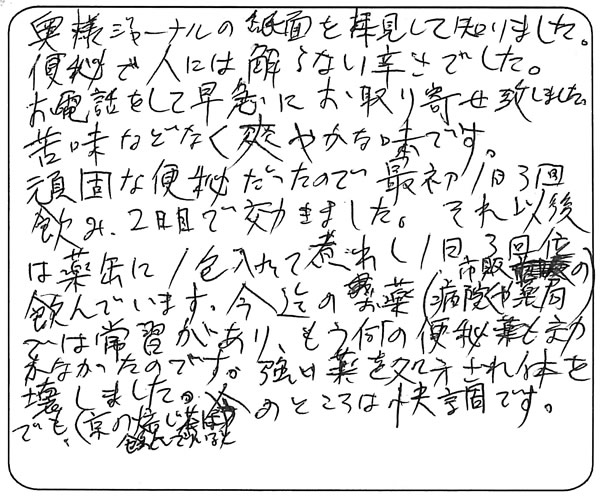 奥様ジャーナルの紙面を拝見して知りました。
便秘で人には解らない辛さでした。
お電話をして早急にお取り寄せ致しました。
苦味などなく爽やかな味です。
頑固な便秘だったので最初1日3回
飲み、2日目で効きました。それ以後
は薬缶に1包入れて煮だし1日3回位
飲んでいます。今迄のお薬(市販病院や薬局の)
では常習があり、もう何の便秘薬も効
かなかったのです。強い薬を処方され体を
壊しました。今のところは快調です。
でも、(京の